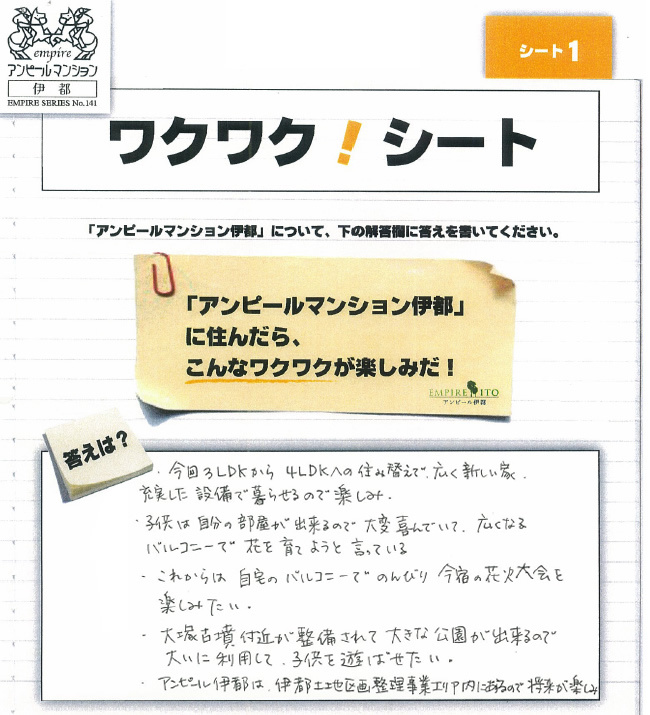 empire
アンピールマンション
伊都
EMPIRE SERIES No.141
シート1
ワクワク!シート
「アンピールマンション伊都」について、下の解答欄に答えを書いてください。
「アンピールマンション伊都」
に住んだら、
こんなワクワクが楽しみだ!
EMPIRE ITO
アンピール伊都
答えは?
・今回3LDKから4LDKへの住み替えで、広く新しい家、
充実した設備で暮らせるので楽しみ.
・子供は自分の部屋が出来るので大変喜んでいて、広くなる
バルコニーで花を育てようと言っている
・これからは自宅のバルコニーでのんびり今宿の花火大会を
楽しみたい.
・大塚古墳付近が整備されて大きな公園が出来るので
大いに利用して、子供を遊ばせたい.
・アンピール伊都は、伊都土地区画整理事業エリア内にあるので将来が楽しみ